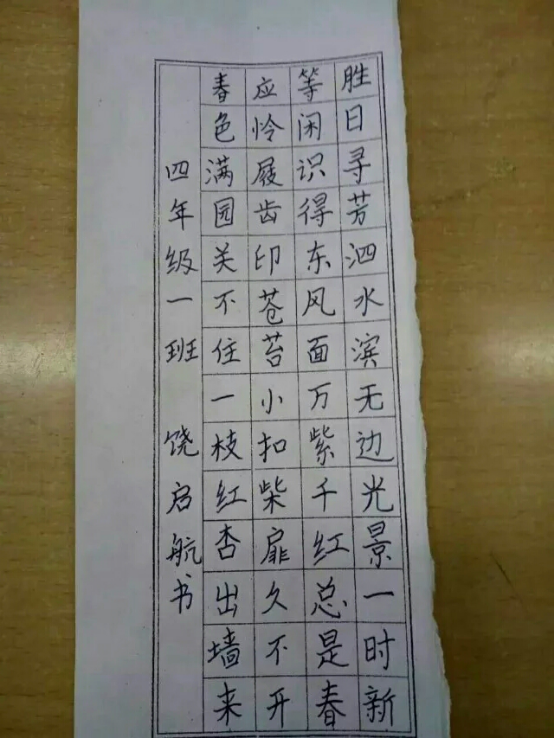 胜日寻芳泗水滨无边光景一时新
等闲识得东风面万紫千红总是春
应怜屐齿印苍苔小扣柴扉久不开
春色满园关不住一枝红杏出墙来
四年级一班 饶启航书